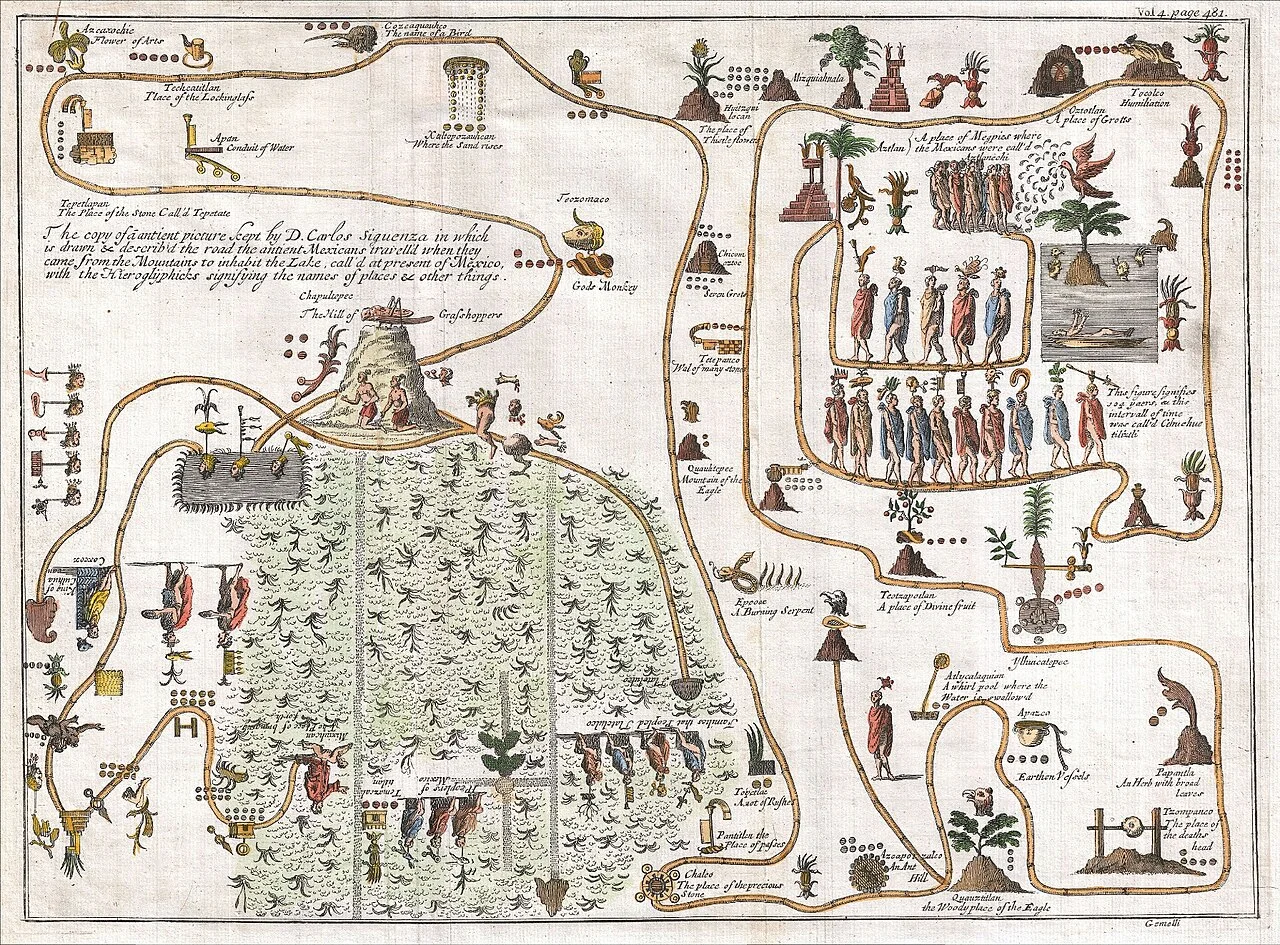 Vol 4. page 481.
Azcaxochic
Flower of Arts
Cozcaquauhco
The name of a Bird
Techcatitlan
Place of the Lockinglass
Apan
Conduit of Water
Xaltopozauhcan
Where the Sand rises
Tepetlapan
The Place of the Stone Call'd Tepetate
The copy of a antient picture kept by D. Carlos Siguenza in which
is drawn & describ'd the road the antient Mexicans travell'd when they
came from the Mountains to inhabit the Lake, call'd at present of Mexico,
with the Hieroglyphicks signifying the names of places & other things.
Teozomaco
Gods Monkey
Chapultepec
The Hill of Grasshoppers
Huitzqui
locan
The place of
Thistle flower
Mizquiahuala
Oztotlan
A place of Grotts
Tocolco
Humiliation
Aztlan
A place of Megpies where
the Mexicans were call'd
Aztlanechi
Chicom
oztoc
Seven Grots
Tetepanco
Wal of many stone
Quauhtepec
Mountain of the
Eagle
This figure signifies
104 years, & this
intervall of time
was call'd Cihuehue
tiliztli
Epcoac
A Burning Serpent
Teotzapotlan
A place of Divine fruit
Ylhuicatepec
Atlycalaquian
A whirl pool where the
Water is swallow'd
Apazco
Earthen Vessels
Papantla
An Herb with broad
leaves
Tzompanco
The place of
the deaths
head
Quauztitlan
the Woody place of the Eagle
Azcapotzalco
An Ant
Hill
Chalco
The place of the precious
Stone
Pantitlan the
Place of passes
Tolpetlac
A xot of Rushes
Coxcox
King of
Culhua
Tlatelulco
Families that Peopled Tlatelulco
People of
Mexico
Mixiuhcan
The Place of bringing
forth
Gemelli